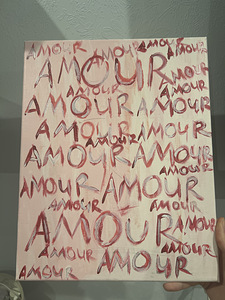 AMOUR AMOUR AMOUR AMOUR
AMOUR AMOUR
AMOUR AMOUR
AMOUR AMOUR
AMOUR AMOUR
AMOUR
AMOUR AMOUR
AMOUR
AMOUR AMOUR
AMOUR AMOUR
AMOUR AMOUR
AMOUR AMOUR
AMOUR AMOUR
AMOUR